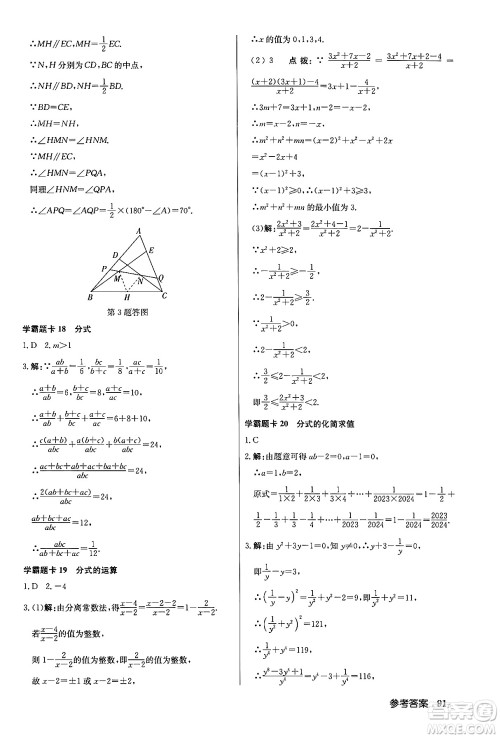 ∴MH∥EC,MH=1/2EC.
∵N,H分别为BC,BD的中点,
∴NH∥BD,NH=1/2BD.
∵BD=EC,
∴MH=NH,
∴∠HMN=∠HNM.
∵MH∥EC,
∴∠HMN=∠PQA,
同理∠HNM=∠QPA,
∴∠APQ=1/2×(180°-∠A)=70°.
A
D
E
P
Q
M
N
B
H
C
第3题答图
学霸题卡18 分式
1.D 2.m>1
3.解:∵ab/(a+b)=1/6,bc/(b+c)=1/8,ac/(a+c)=1/10,
∴(a+b)/ab=6,(b+c)/bc=8,(a+c)/ac=10,
∴(ac+bc)/abc+(ab+ac)/abc+(ab+bc)/abc=24,
∴2(ab+bc+ac)/abc=24,
∴(ab+bc+ac)/abc=12,
∴abc/(ab+bc+ac)=1/12.
学霸题卡19 分式的运算
1.D 2.-4
3.(1)解:由分离常数法,得(x-4)/(x-2)=(x-2-2)/(x-2)=1-2/(x-2).
若(x-4)/(x-2)的值为整数,
则1-2/(x-2)的值为整数,即2/(x-2)的值为整数,
∴x-2的值为-2,-1,1,2,
∴x的值为0,1,3,4.
(2)3 点拨:∵(3x²+7x-2)/(x+2)=(3x²+7x+2-4)/(x+2)=
((x+2)(3x+1)-4)/(x+2)=3x+1-4/(x+2),
∴3m+7=3x+1,n=x+2,
∴m=x-2,
∴m²+n²+mn=(x-2)²+(x+2)²+(x-2)(x+2)=
x²-4x+4+x²+4x+4+x²-4=3x²+4.
∵(x-1)²≥0,
∴m²+n²+mn的最小值为3.
(3)解:(2x²+3)/(x²+2)=(2(x²+2)-1)/(x²+2)=2-1/(x²+2).
∵x²+2≥2,
∴1/(x²+2)≤1/2,
∴-1/(x²+2)≥-1/2,
∴2-1/(x²+2)≥2-1/2=3/2.
∵1/(x²+2)>0,
∴2-1/(x²+2)<2,
∴3/2≤2-1/(x²+2)<2,
即3/2≤(2x²+3)/(x²+2)<2.
学霸题卡20 分式的化简求值
1.C
2.解:由题意可得ab-2=0,b-2=0,
∴a=1,b=2,
原式=1/(1×2)+1/(2×3)+…+1/(2023×2024)=1-
1/2+1/2-1/3+…+1/2023-1/2024=1-1/2024=2023/2024.
3.解:由y²+3y-1=0,知y≠0,∴y+3-1/y=0,
即1/y-y=3,
∴(1/y-y)²=1/y²+y²-2=9,即1/y²+y²=11,
∴(1/y²+y²)²=1/y⁴+y⁴+2=121,
即1/y⁴+y⁴=119,
参考答案 91